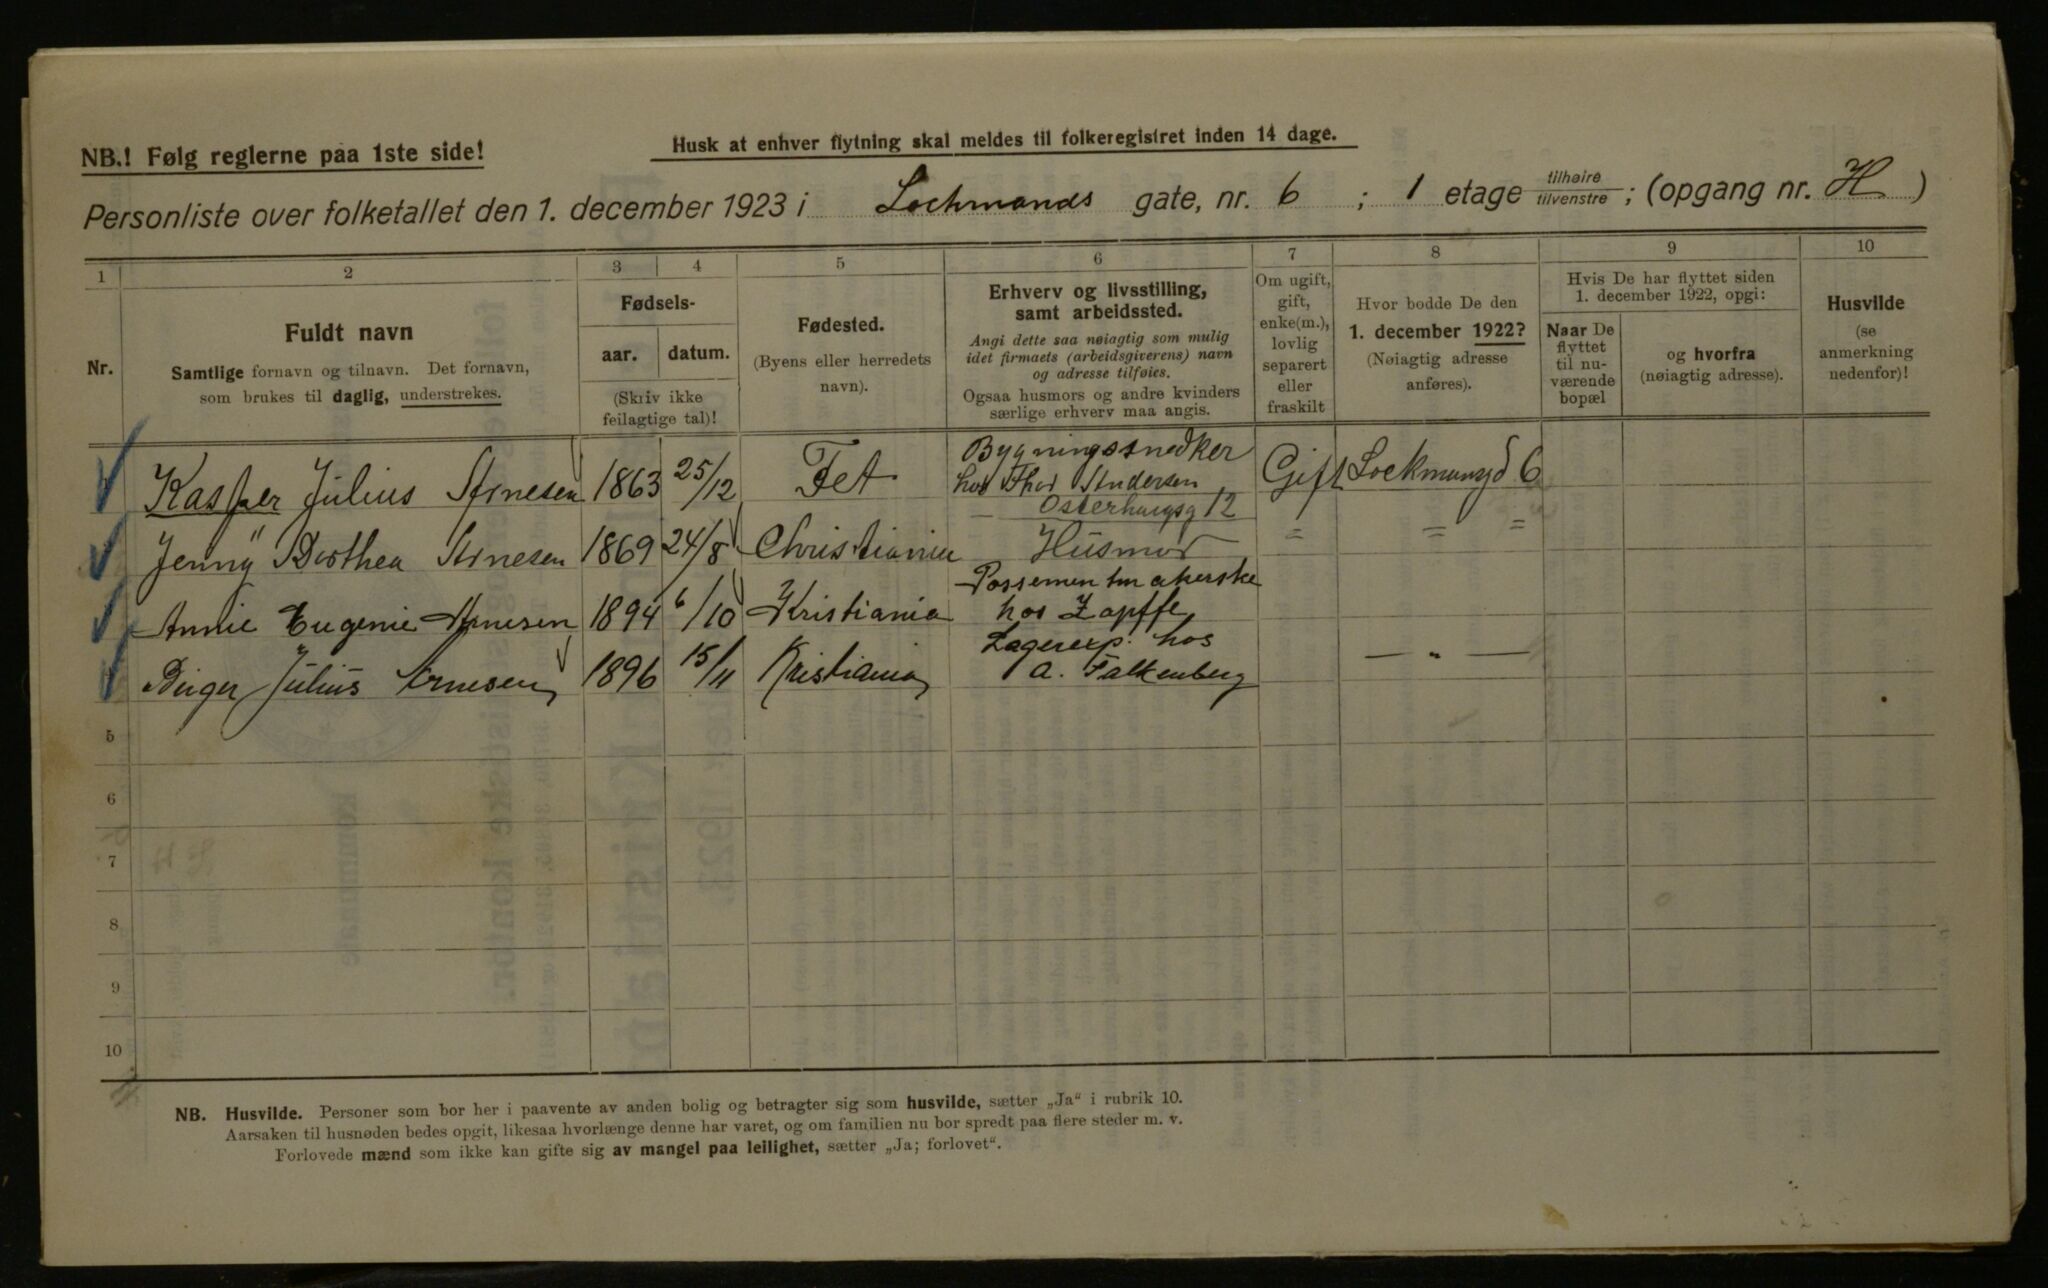 NB.! Følg reglerne paa 1ste side!
Husk at enhver flytning skal meldes til folkeregistret inden 14 dage.
Personliste over folketallet den 1. december 1923 i Lochmands gate, nr. 6 ; 1 etage tilhøire/tilvenstre ; (opgang nr. H )
1 2 3 4 5 6 7 8 9 10
Nr.
Fuldt navn
Samtlige fornavn og tilnavn. Det fornavn,
som brukes til daglig, understrekes.
Fødsels-
aar. datum.
(Skriv ikke
feilagtige tal)!
Fødested.
(Byens eller herredets
navn).
Erhverv og livsstilling,
samt arbeidssted.
Angi dette saa nøiagtig som mulig
idet firmaets (arbeidsgiverens) navn
og adresse tilføies.
Ogsaa husmors og andre kvinders
særlige erhverv maa angis.
Om ugift,
gift,
enke(m.),
lovlig
separert
eller
fraskilt
Hvor bodde De den
1. december 1922?
(Nøiagtig adresse
anføres).
Hvis De har flyttet siden
1. december 1922, opgi:
Naar De
flyttet
til nu-
værende
bopæl
og hvorfra
(nøiagtig adresse).
Husvilde
(se
anmerkning
nedenfor)!
Kasper Julius Arnesen 1863 25/12 Fet Bygningssnedker
hos Thor Andersen
Osterhausg 12
Gift Lockmansgd 6
Jenny Dorthea Arnesen 1869 24/8 Christiania Husmor = = =
Annie Eugenie Arnesen 1894 6/10 Kristiania Possementmakerske
hos Zapffe
Birger Julius Arnesen 1896 15/11 Kristiania Lagerexp. hos
A. Falkenberg
— " —
5
6
7
8
9
10
NB. Husvilde. Personer som bor her i paavente av anden bolig og betragter sig som husvilde, sætter „Ja“ i rubrik 10.
Aarsaken til husnøden bedes opgit, likesaa hvorlænge denne har varet, og om familien nu bor spredt paa flere steder m. v.
Forlovede mænd som ikke kan gifte sig av mangel paa leilighet, sætter „Ja; forlovet“.